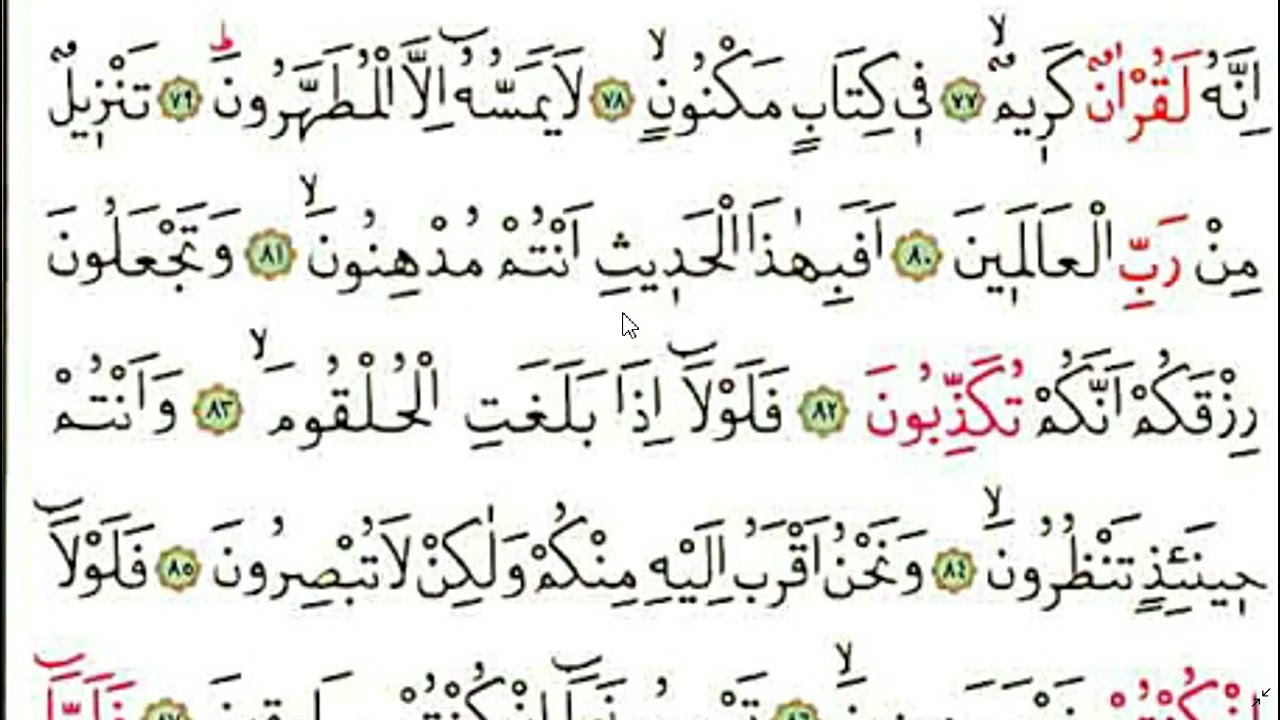 اِنَّهُ لَقُرْاٰنٌ كَرِيمٌۙ ﴿٧٧﴾ فٖي كِتَابٍ مَكْنُونٍۙ ﴿٧٨﴾ لَا يَمَسُّهُٓ اِلَّا الْمُطَهَّرُونَۜ ﴿٧٩﴾ تَنْزٖيلٌ
مِنْ رَبِّ الْعَالَمٖينَ ﴿٨٠﴾ اَفَبِهٰذَا الْحَدٖيثِ اَنْتُمْ مُدْهِنُونَۙ ﴿٨١﴾ وَتَجْعَلُونَ
رِزْقَكُمْ اَنَّكُمْ تُكَذِّبُونَ ﴿٨٢﴾ فَلَوْلَٓا اِذَا بَلَغَتِ الْحُلْقُومَۙ ﴿٨٣﴾ وَاَنْتُمْ
حٖينَئِذٍ تَنْظُرُونَۙ ﴿٨٤﴾ وَنَحْنُ اَقْرَبُ اِلَيْهِ مِنْكُمْ وَلٰكِنْ لَا تُبْصِرُونَ ﴿٨٥﴾ فَلَوْلَٓا